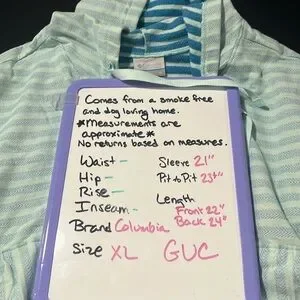 Comes from a smoke free
and dog loving home.
*Measurements are
approximate*
No returns based on measures.
Waist -
Hip -
Rise -
Inseam -
Brand Columbia
Size XL
Sleeve 21"
Pit to Pit 23½"
Length
Front 22"
Back 24"
GUC